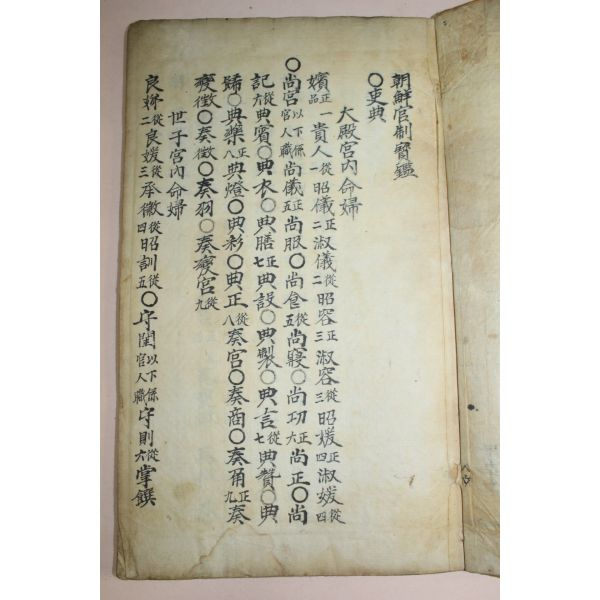 朝鮮官制寶鑑
○吏典
大殿宮內命婦
嬪正一品貴人從一昭儀正二淑儀從二昭容正三淑容從三昭媛正四淑媛從四
○尙宮以下係官人職尙儀正五尙服○尙食從五尙寢○尙功正六尙正○尙
記從六典賓○典衣○典膳正七典設○典製○典言從七典贊○典
婦○典藥正八典燈○典彩○典正從八奏宮○奏商○奏角正九奏
變徵○奏徵○奏羽○奏變宮從九
世子宮內命婦
良娣從二良媛從三承徽從四昭訓從五○守閨以下係官人職守則從六掌饌